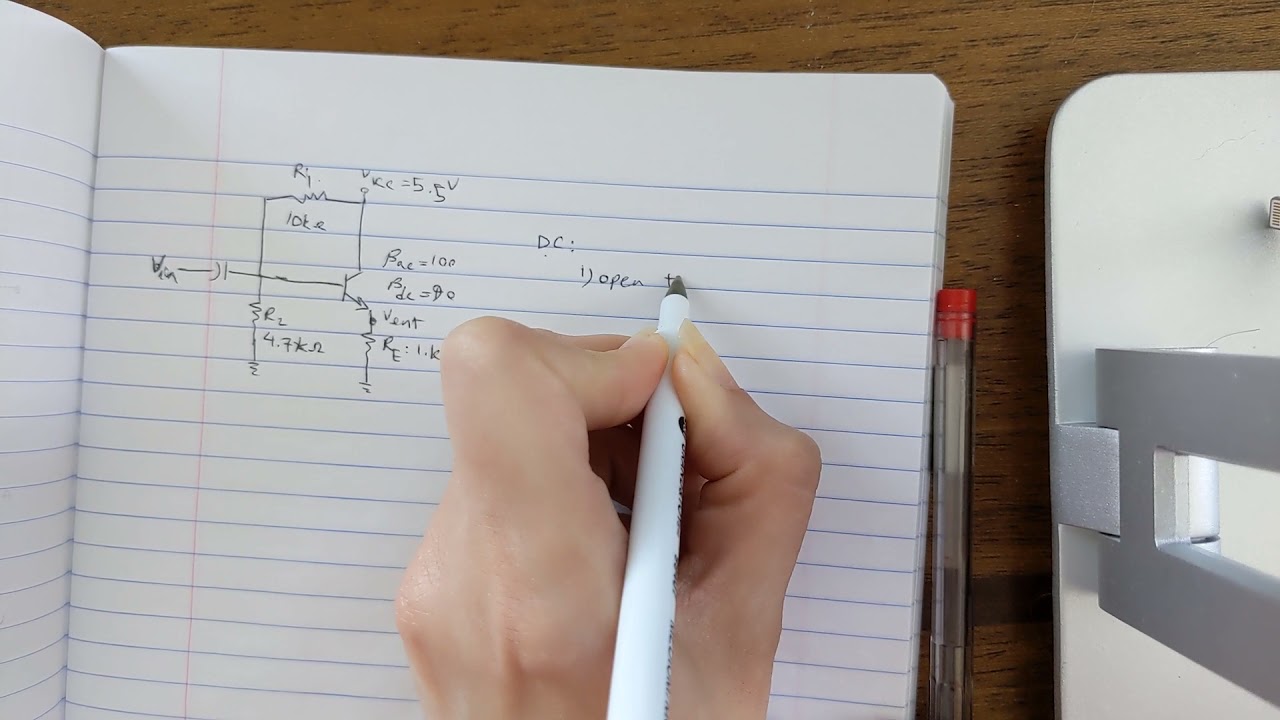 R1
VCC = 5.5V
10kΩ
Vin
βac = 100
βdc = 90
R2
Vout
4.7kΩ
RE: 1.k
DC:
1) open t